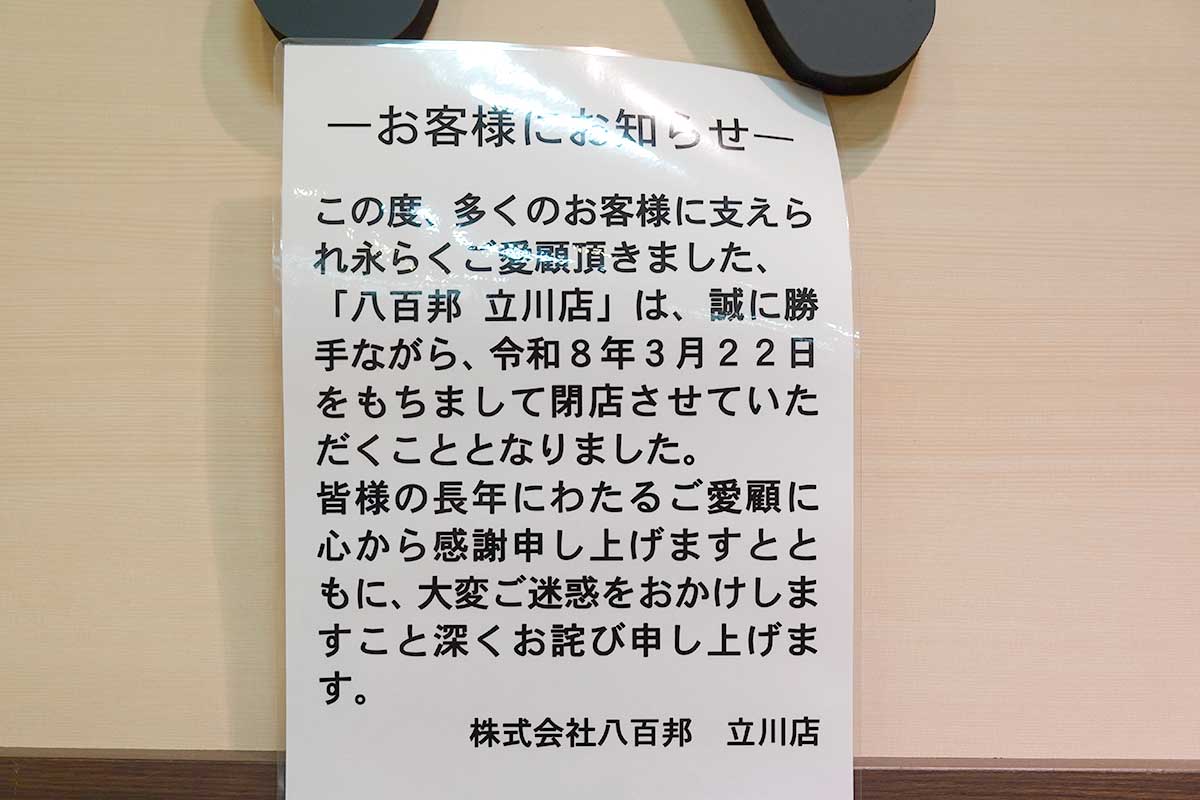 ―お客様にお知らせ―
この度、多くのお客様に支えら
れ永らくご愛顧頂きました、
「八百邦 立川店」は、誠に勝
手ながら、令和８年３月２２日
をもちまして閉店させていた
だくこととなりました。
皆様の長年にわたるご愛顧に
心から感謝申し上げますとと
もに、大変ご迷惑をおかけしま
すこと深くお詫び申し上げま
す。
株式会社八百邦　立川店